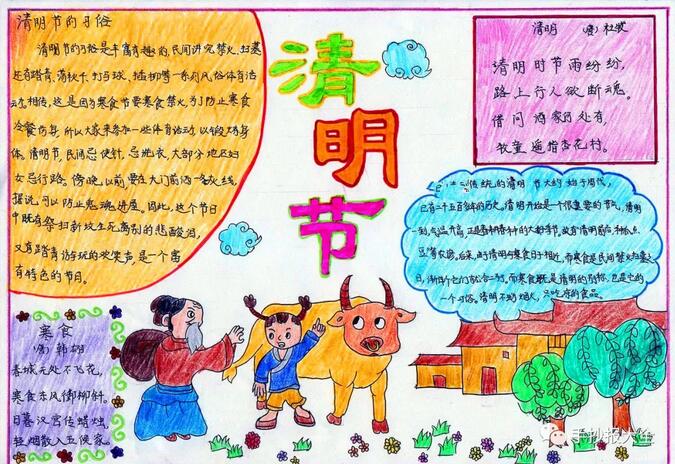 清明节的习俗
清明节的习俗是丰富有趣的,民间讲究禁火、扫墓
还有踏青、荡秋千、打马球、插柳等一系列风俗体育活
动,相传,这是因为寒食节要寒食禁火,为了防止寒食
冷餐伤身,所以大家来参加一些体育活动,以锻炼身
体。清明节,民间忌使针,忌洗衣,大部分地区妇
女忌行路。傍晚以前,要在大门前洒一条灰线,
据说可以防止鬼魂进屋。因此,这个节日
中既有祭扫新坟生死离别的悲酸泪,
又有踏青游玩的欢笑声,是一个富
有特色的节日。
清明节
清明 (唐)杜牧
清明时节雨纷纷,
路上行人欲断魂。
借问酒家何处有,
牧童遥指杏花村。
传统的清明节大约始于周代,
已有二千五百多年的历史。清明开始是一个很重要的节气,清明
一到,气温升高,正是春耕春种的大好时节,故有清明前后,种瓜点
豆
后来,由于清明与寒食日子相近,而寒食是民间禁火扫墓之
日,渐渐
寒食与清明
而寒食既是清明的别称,也是
一个习俗。清明不动烟火,只吃凉的食品。
寒食
(唐) 韩翃
春城无处不飞花,
寒食东风御柳斜。
日暮汉宫传蜡烛,
轻烟散入五侯家。
手抄报大全